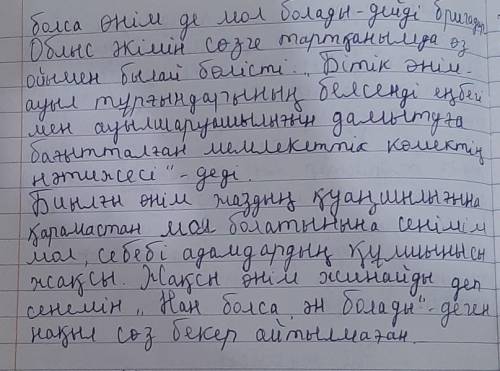 болса өнім де мол болады - дейді бригадир.
Облыс әкімін сөзге тартқанымда өз
ойымен былай бөлісті. „Бітік өнім-
ауыл тұрғындарының белсенді еңбегі
мен ауылшаруашылығын дамытуға
бағытталған мемлекеттік көмектің
нәтижесі" - деді.
Биылғы өнім жаздың қуаңшылығына
қарамастан мол болатынына сенімім
мол, себебі адамдардың құлшынысы
жақсы. Жақсы өнім жинайды деп
сенемін „Нан болса, ән болады" - деген
нақыл сөз бекер айтылмаған.